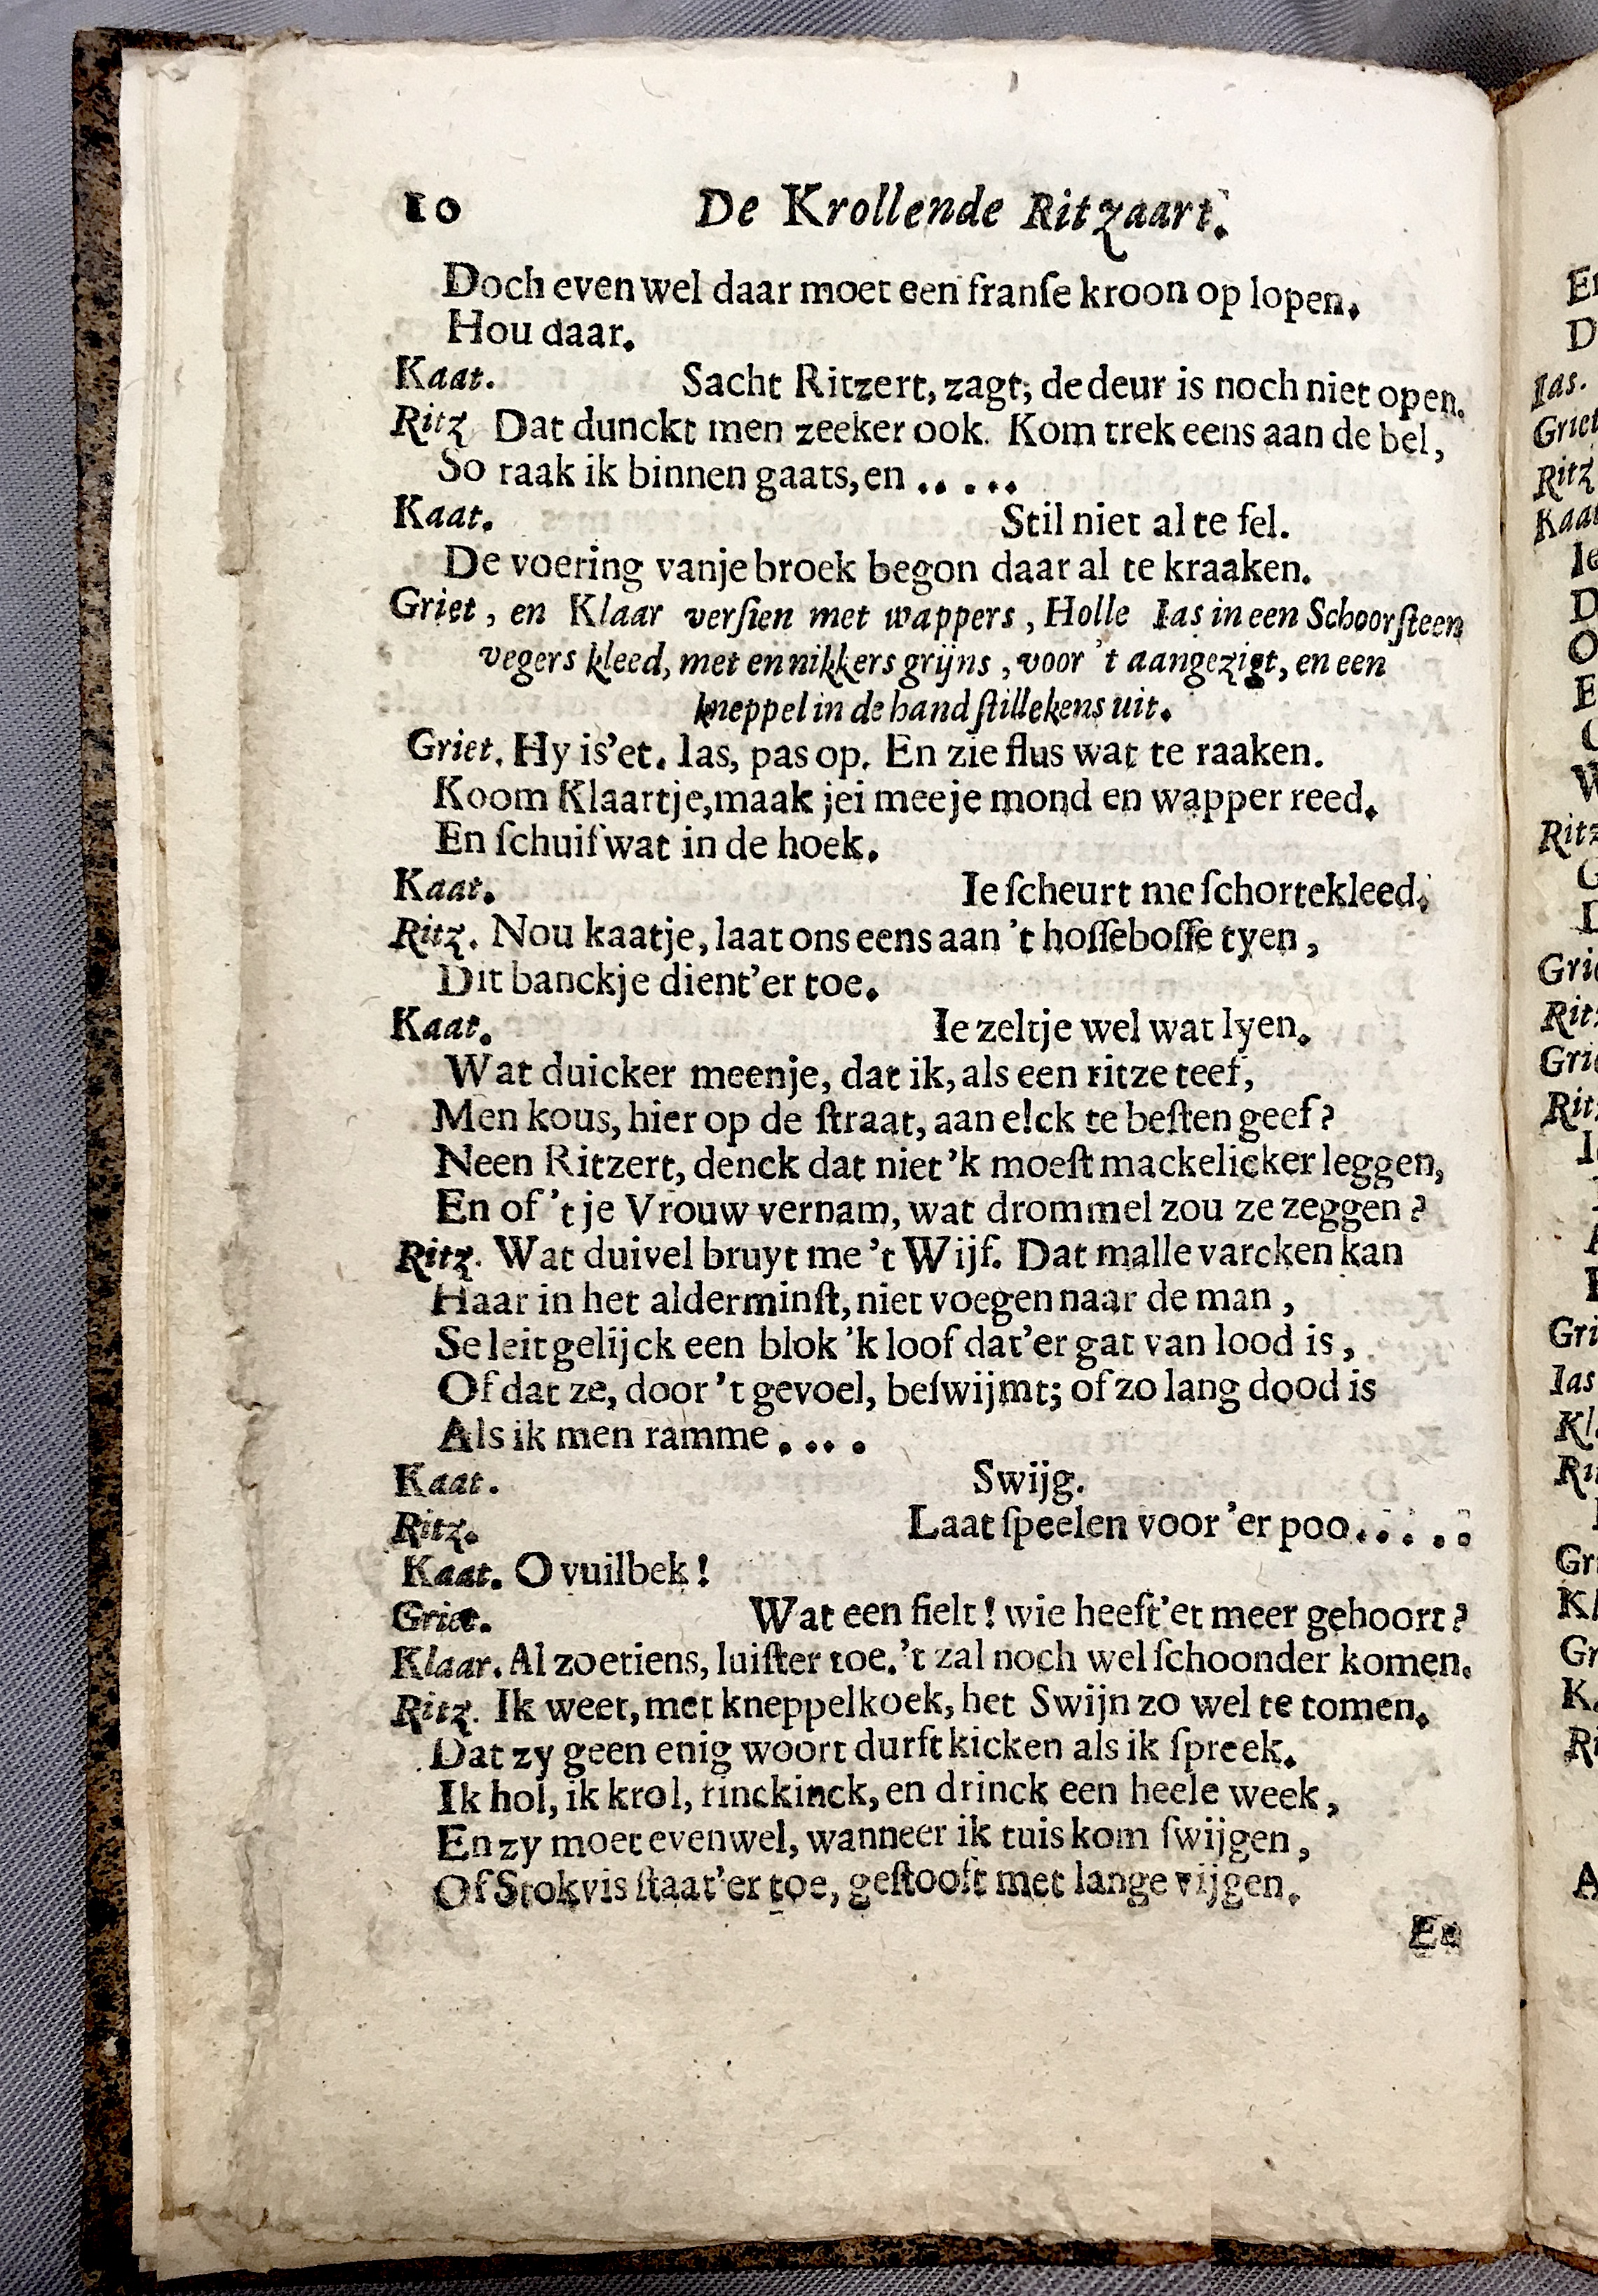 10 De Krollende Ritzaart.
Doch evenwel daar moet een franſe kroon op lopen.
Hou daar.
Kaat. Sacht Ritzert, zagt, de deur is noch niet open.
Ritz Dat dunckt men zeeker ook. Kom trek eens aan de bel,
So raak ik binnen gaats, en .....
Kaat. Stil niet al te fel.
De voering vanje broek begon daar al te kraaken.
Griet, en Klaar verſien met wappers, Holle Ias in een Schoorſteen
vegers kleed, met en nikkers grijns, voor 't aangezigt, en een
kneppel in de hand ſtillekens uit.
Griet. Hy is'et. Ias, pas op. En zie flus wat te raaken.
Koom Klaartje, maak jei meeje mond en wapper reed.
En ſchuif wat in de hoek.
Kaat. Ie ſcheurt me ſchortekleed.
Ritz. Nou kaatje, laat ons eens aan 't hoſſeboſſe tyen,
Dit banckje dient'er toe.
Kaat. Ie zeltje wel wat lyen.
Wat duicker meenje, dat ik, als een ritze teef,
Men kous, hier op de ſtraat, aan elck te beſten geef?
Neen Ritzert, denck dat niet 'k moeſt mackelicker leggen,
En of 't je Vrouw vernam, wat drommel zou ze zeggen?
Ritz. Wat duivel bruyt me 't Wijf. Dat malle varcken kan
Haar in het alderminſt, niet voegen naar de man,
Se leit gelijck een blok 'k loof dat'er gat van lood is,
Of dat ze, door 't gevoel, beſwijmt; of zo lang dood is
Als ik men ramme....
Kaat. Swijg.
Ritz. Laat ſpeelen voor 'er poo.....
Kaat. O vuilbek!
Griet. Wat een fielt! wie heeft'et meer gehoort?
Klaar. Al zoetiens, luiſter toe. 't zal noch wel ſchoonder komen.
Ritz. Ik weet, met kneppelkoek, het Swijn zo wel te tomen.
Dat zy geen enig woort durft kicken als ik ſpreek.
Ik hol, ik krol, rinckinck, en drinck een heele week,
En zy moet evenwel, wanneer ik tuis kom ſwijgen,
Of Stokvis ſtaat'er toe, geſtooft met lange vijgen.
En
Ias.
Griet
Ritz
Kaat
Ritz